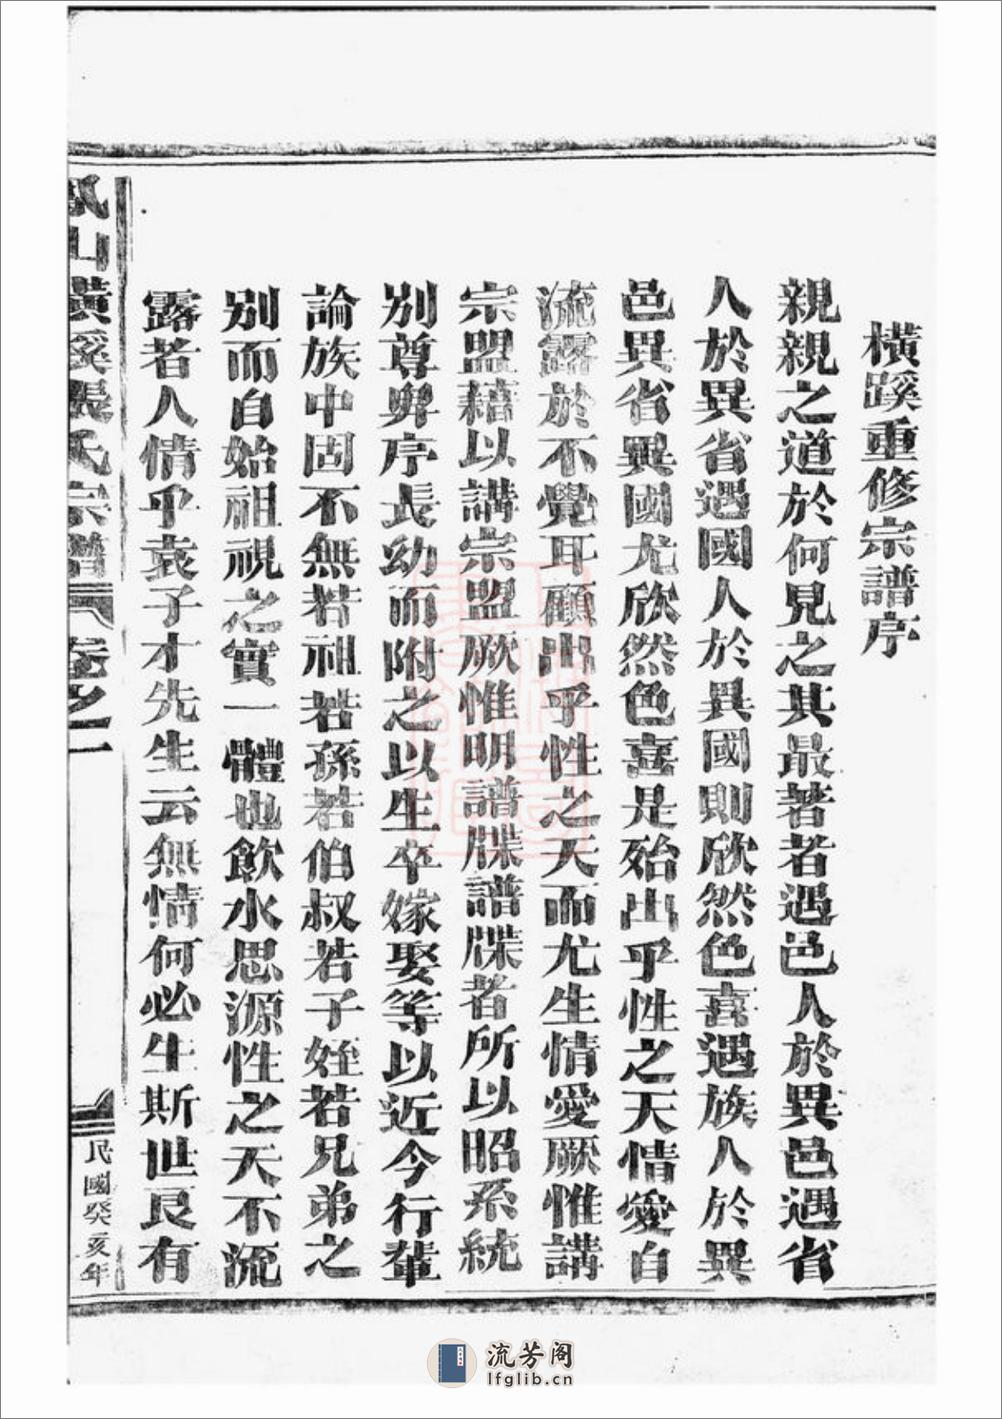 橫蹊重修宗譜序
親親之道於何見之其最著者遇邑人於異邑遇省
人於異省遇國人於異國則欣然色喜遇族人於異
邑異省異國尤欣然色喜是殆出乎性之天情愛自
流露於不覺耳顧出乎性之天而尤生情愛厥惟講
宗盟藉以講宗盟厥惟明譜牒譜牒者所以昭系統
别尊卑序長幼而附之以生卒嫁娶等以近今行輩
論族中固不無若祖若孫若伯叔若子姪若兄弟之
别而自始祖視之實一體也飲水思源性之天不流
露者人情乎袁子才先生云無情何必生斯世良有
鳳山橫溪張氏宗譜 卷之一
民國癸亥年
流芳阁
lfglib.cn